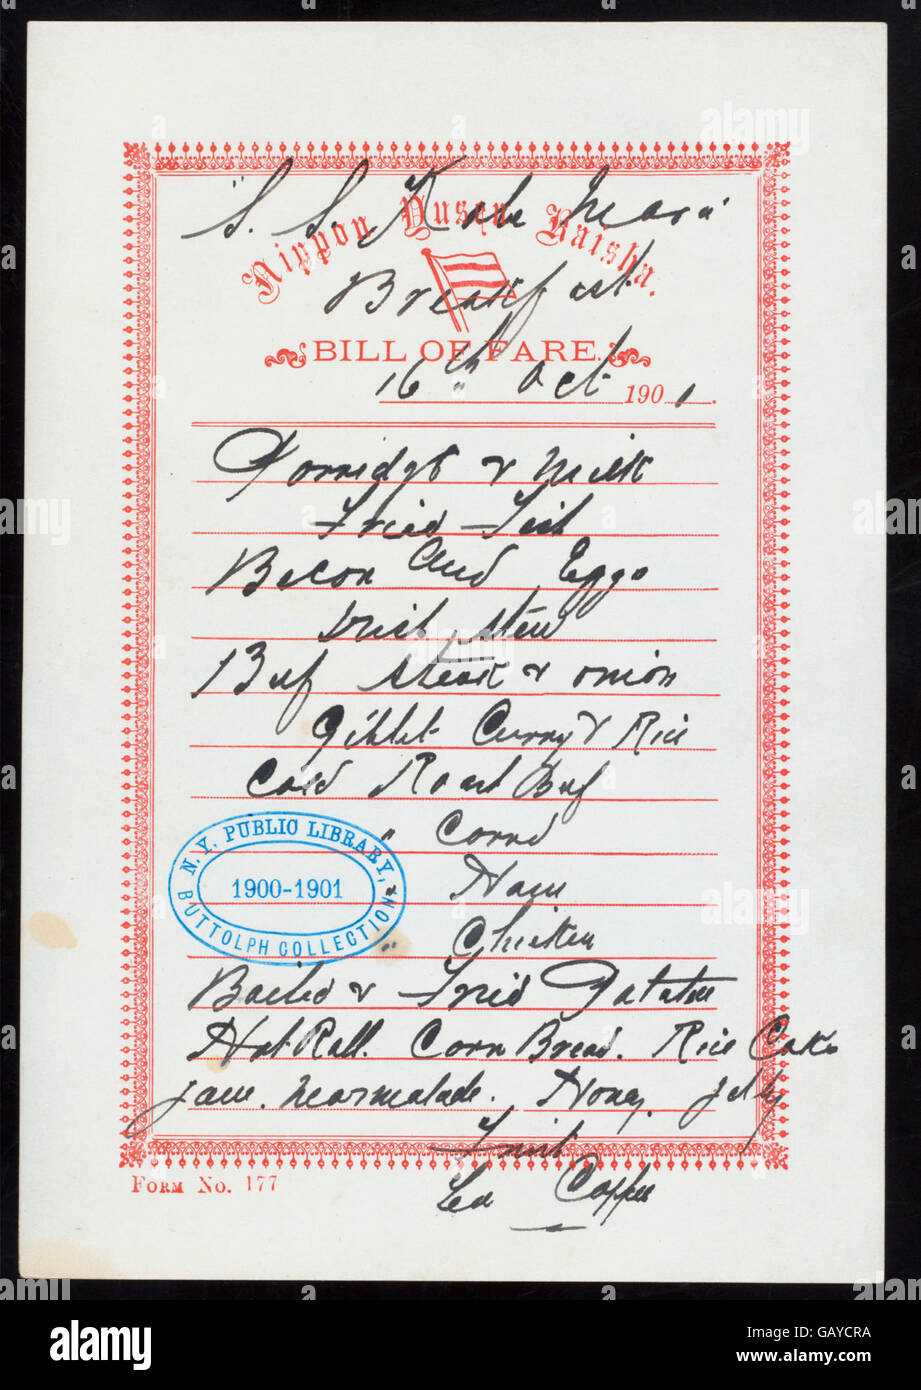 "S. S. Kobe Maru"
Nippon Yusen Kaisha.
Breakfast
BILL OF FARE.
16th Oct 1901.
Porridge & Milk
Fried Fish
Bacon and Eggs
Irish Stew
Beef Steak & onion
Giblet Curry & Rice
Cold Roast Beef
" Corned
Ham
" Chicken
Boiled & Fried Potatoes
Hot Roll. Corn Bread. Rice Cake
Jam. Marmalade. Honey. Jelly
Fruit
Tea Coffee
N.Y. PUBLIC LIBRARY,
1900-1901
BUTTOLPH COLLECTION
FORM NO. 177
alamy
alamy
Image ID: GAYCRA
www.alamy.com